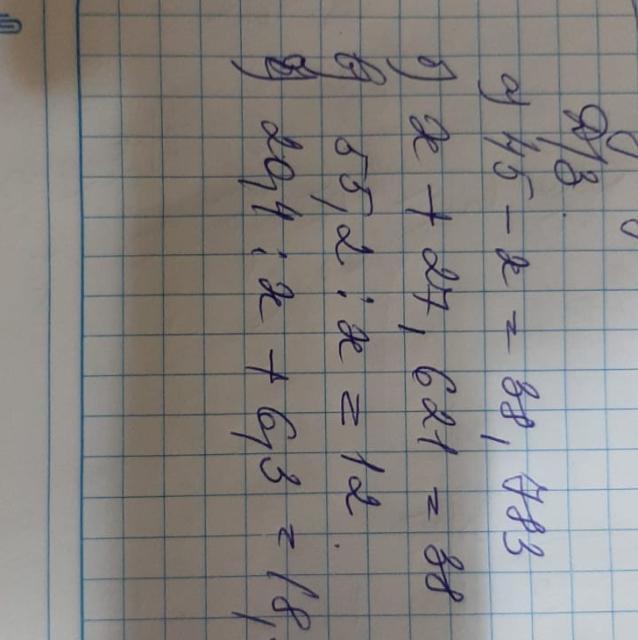 Д/З
а) 45 - x = 38,783
б) x + 27,621 = 38
в) 55,2 : x = 12
г) 20,4 : x + 6,3 = 18,